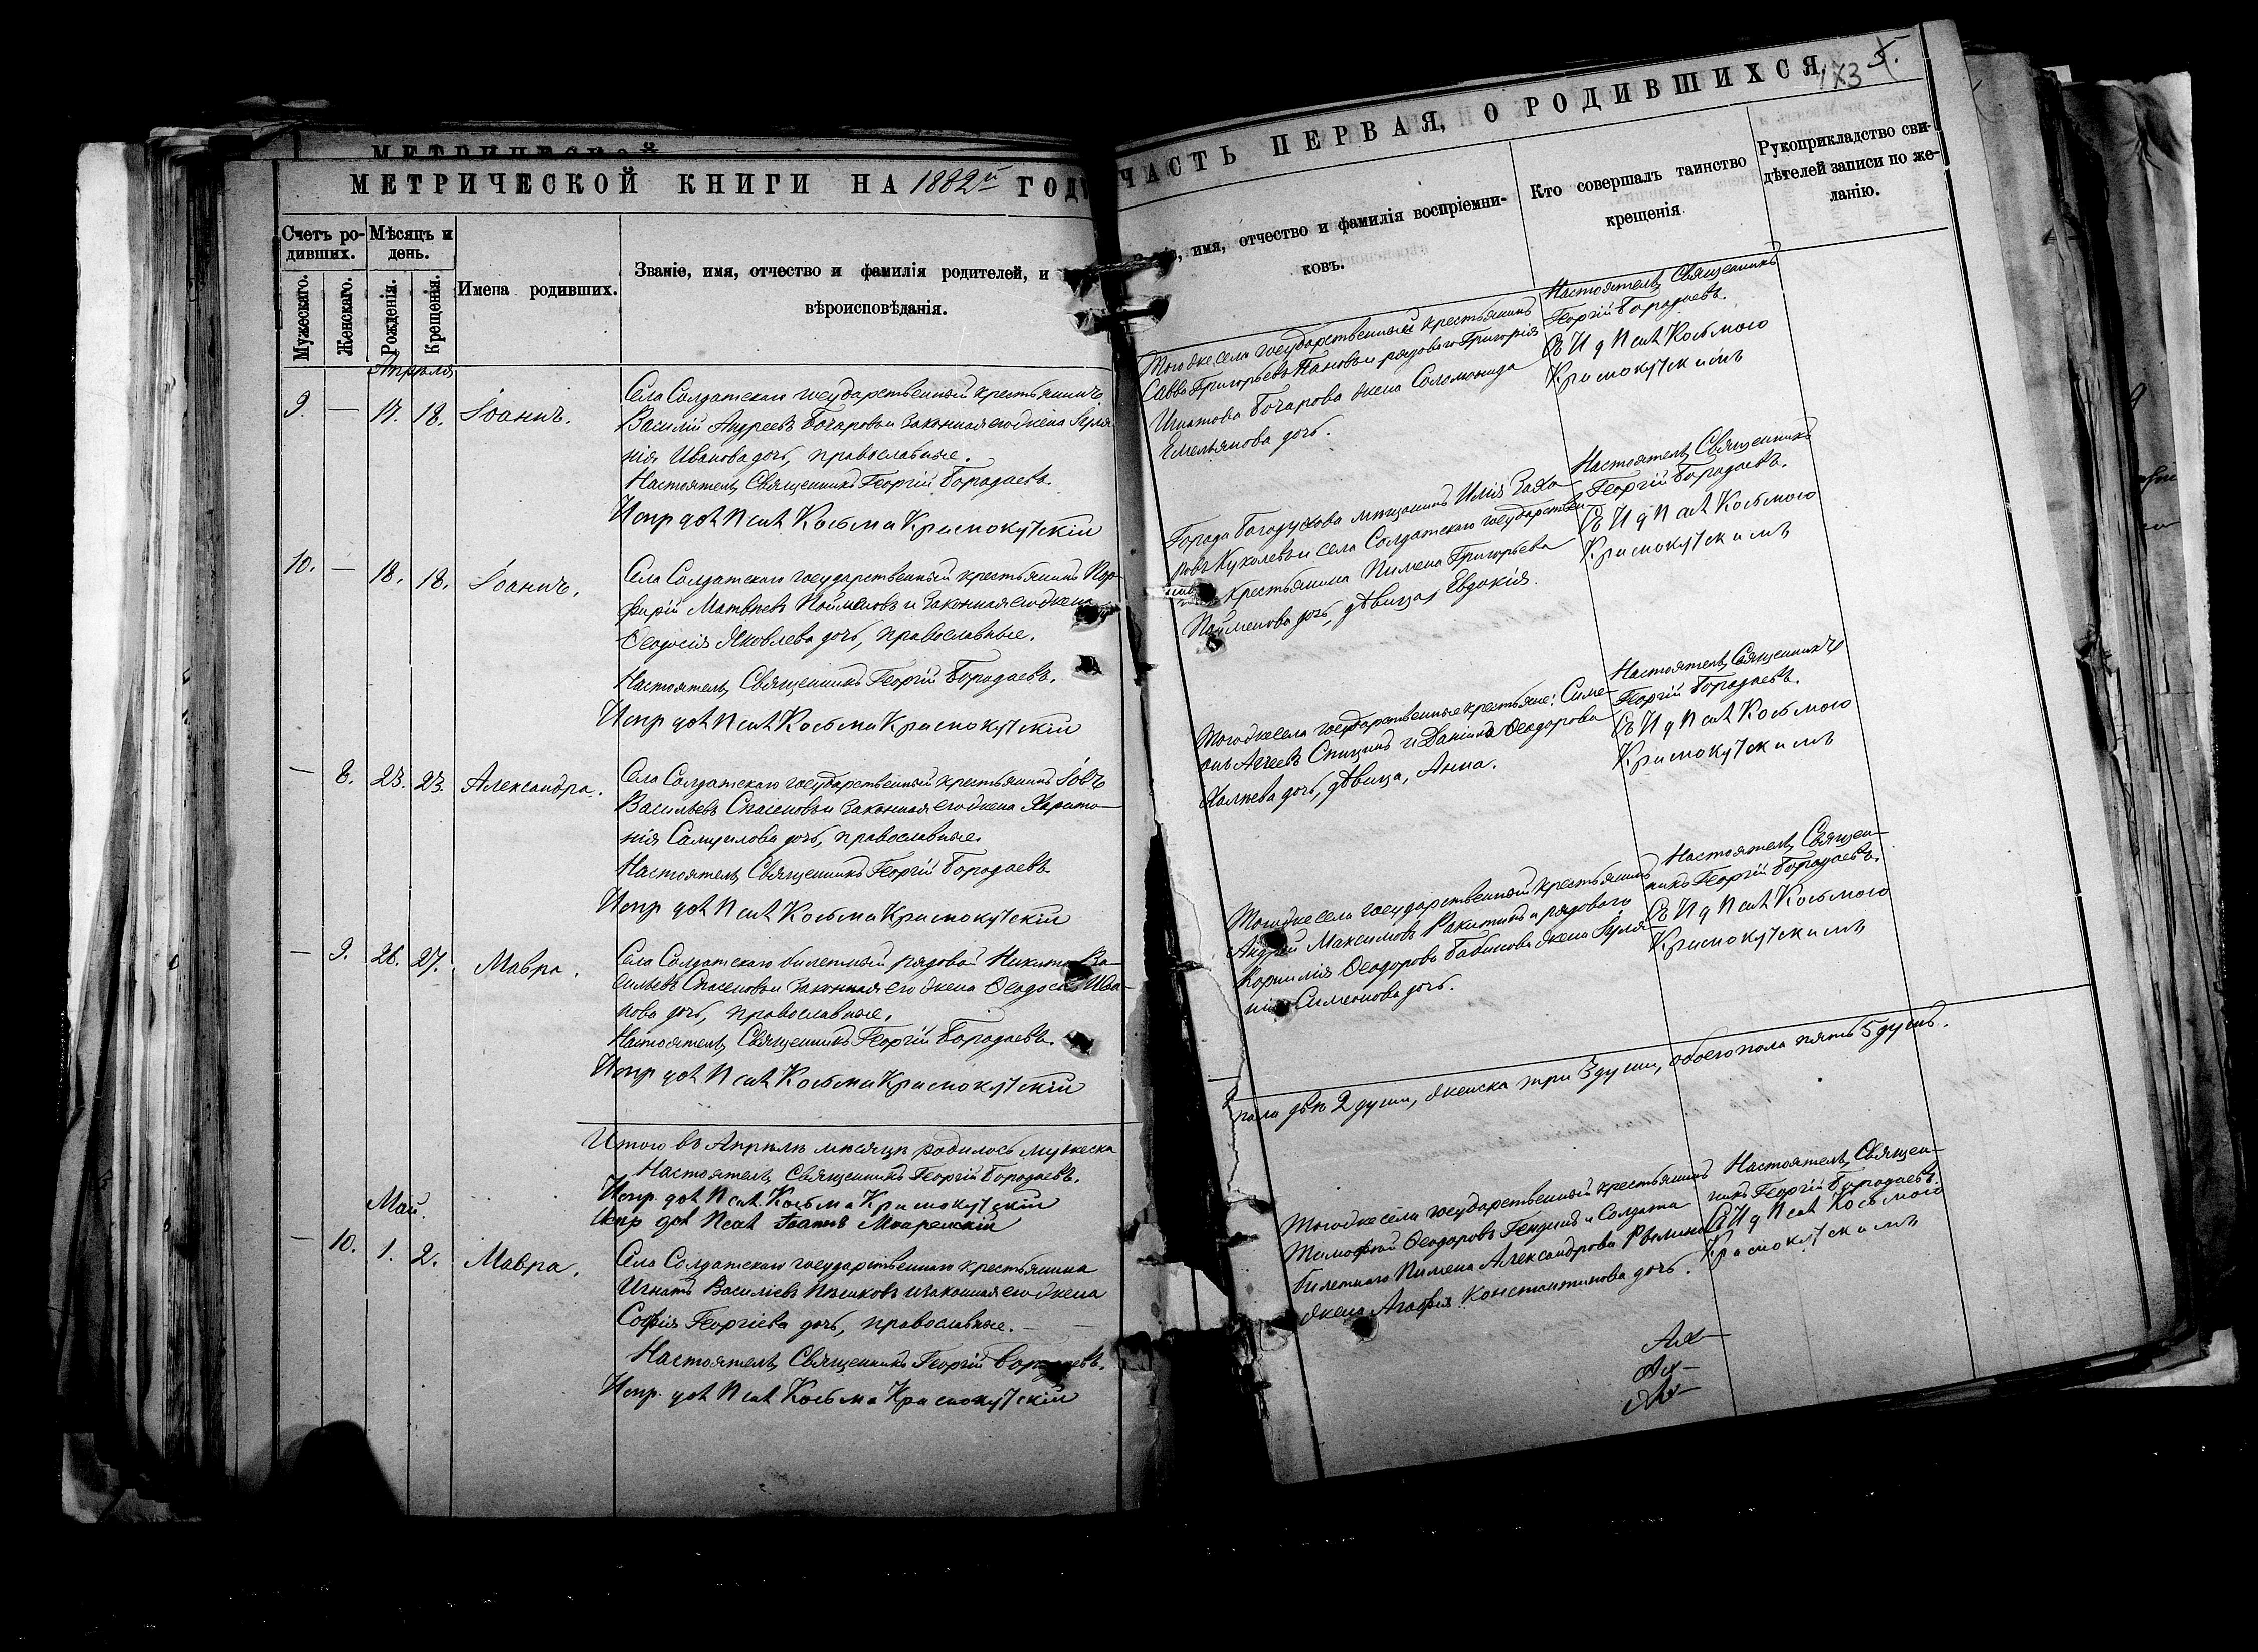 МЕТРИЧЕСКОЙ
МЕТРИЧЕСКОЙ КНИГИ НА 1882й ГОД
Счетъ ро-
дившихъ.
Мѣсяцъ и
день.
Мужескаго.
Женскаго.
Рожденія.
Крещенія.
Имена родившихъ.
Званіе, имя, отчество и фамилія родителей, и
вѣроисповѣданія.
Апрѣля
9. — 17. 18. Іоаннъ.
Села Солдатскаго государственный крестьянинъ
Василій Андреевъ Бочаровъ и законная его жена
нія Иванова дочь, православные.
Настоятель, Священникъ Георгій Бородаевъ.
Испр дол Псал Косьма Краснокутскій
10. — 18. 18. Іоаннъ.
Села Солдатскаго государственный крестьянинъ Пор-
фирій Матвѣевъ Пойменовъ и законная его жена
Ѳеодосія Яковлева дочь, православные.
Настоятель, Священникъ Георгій Бородаевъ.
Испр дол Псал Косьма Краснокутскій
— 8. 23. 23. Александра.
Села Солдатскаго государственный крестьянинъ Іовъ
Васильевъ Спасеновъ и законная его жена Харито-
нія Самуилова дочь, православные.
Настоятель, Священникъ Георгій Бородаевъ
Испр дол Псал Косьма Краснокутскій
— 9. 26. 27. Мавра.
Села Солдатскаго билетный рядовой Никита Ва-
сильевъ Спасеновъ и законная его жена Ѳеодосія Ива-
нова дочь, православные.
Настоятель, Священникъ Георгій Бородаевъ.
Испр дол Псал Косьма Краснокутскій
Итого въ Апрѣлѣ мѣсяцѣ родилось мужеска
Настоятель, Священникъ Георгій Бородаевъ.
Испр. дол Псал. Косьма Краснокутскій
Испр дол Псал Іоаннъ
Май.
— 10. 1. 2. Мавра.
Села Солдатскаго государственнаго крестьянина
Игнатъ Василіевъ и законная его жена
Софія Георгіева дочь, православные. —
Настоятель, Священникъ Георгій Бородаевъ.
Испр. дол Псал Косьма Краснокутскій
ЧАСТЬ ПЕРВАЯ, О РОДИВШИХСЯ.
173 5.
имя, отчество и фамилія воспріемни-
ковъ.
Кто совершалъ таинство
крещенія.
Рукоприкладство сви-
дѣтелей записи по же-
ланію.
Того же села государственный крестьянинъ
Савва Григорьевъ Пановъ и рядоваго Григорія
Игнатова Бочарова жена Соломонида
Емельянова дочь.
Настоятель, Священникъ
Георгій Бородаевъ.
Съ И д Псал Косьмою
Краснокутскимъ
Города Богодухова мѣщанинъ Илія Заха-
ровъ Куколевъ и села Солдатскаго государствен
крестьянина Пимена Григорьева
Пойменова дочь, дѣвица, Евдокія.
Настоятель, Священникъ
Георгій Бородаевъ.
Съ И д Псал Косьмою
Краснокутскимъ
Того же села государственные крестьяне: Симе-
онъ Агеевъ Спицинъ и Даніила Ѳеодорова
дочь, дѣвица, Анна.
Настоятель, Священникъ
Георгій Бородаевъ.
Съ И д Псал Косьмою
Краснокутскимъ
Того же села государственный крестьянинъ
Андрей Максимовъ Ракитинъ и рядоваго
Корнилія Ѳеодорова Бабинова жена
Симеонова дочь.
Настоятель, Священ-
никъ Георгій Бородаевъ.
Съ И д Псал Косьмою
Краснокутскимъ
пола двѣ 2 души, женска три 3 души, обоего пола пять 5 душъ.
Того же села государственный крестьянинъ
Тимофей Ѳеодоровъ и Солдата
билетнаго Пимена Александрова
жена Агафія Константинова дочь.
Настоятель, Священ-
никъ Георгій Бородаевъ.
Съ И д Псал Косьмою
Краснокутскимъ